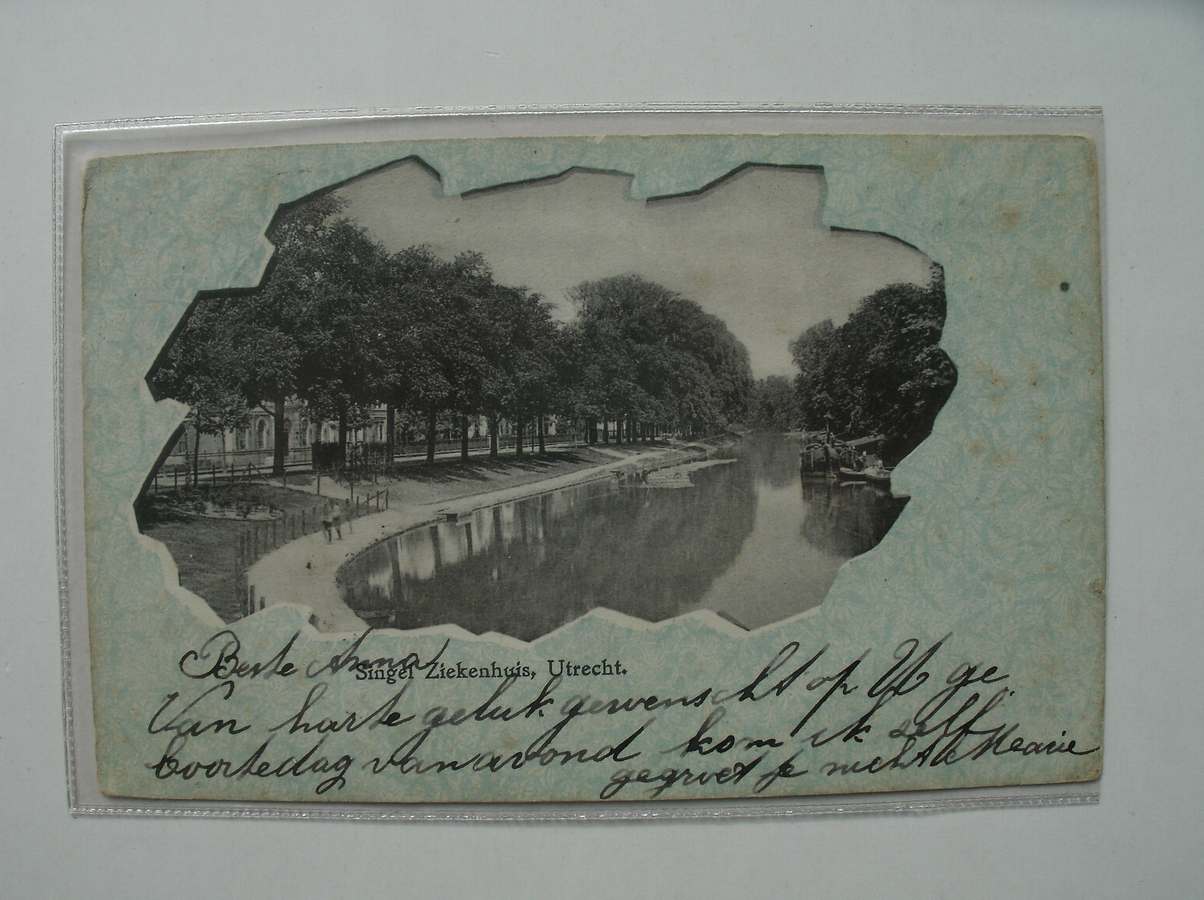 Beste Anna
Singel Ziekenhuis, Utrecht.
Van harte geluk gewenscht op U ge
boortedag van avond kom ik zelf
gegroet je nicht Mearie